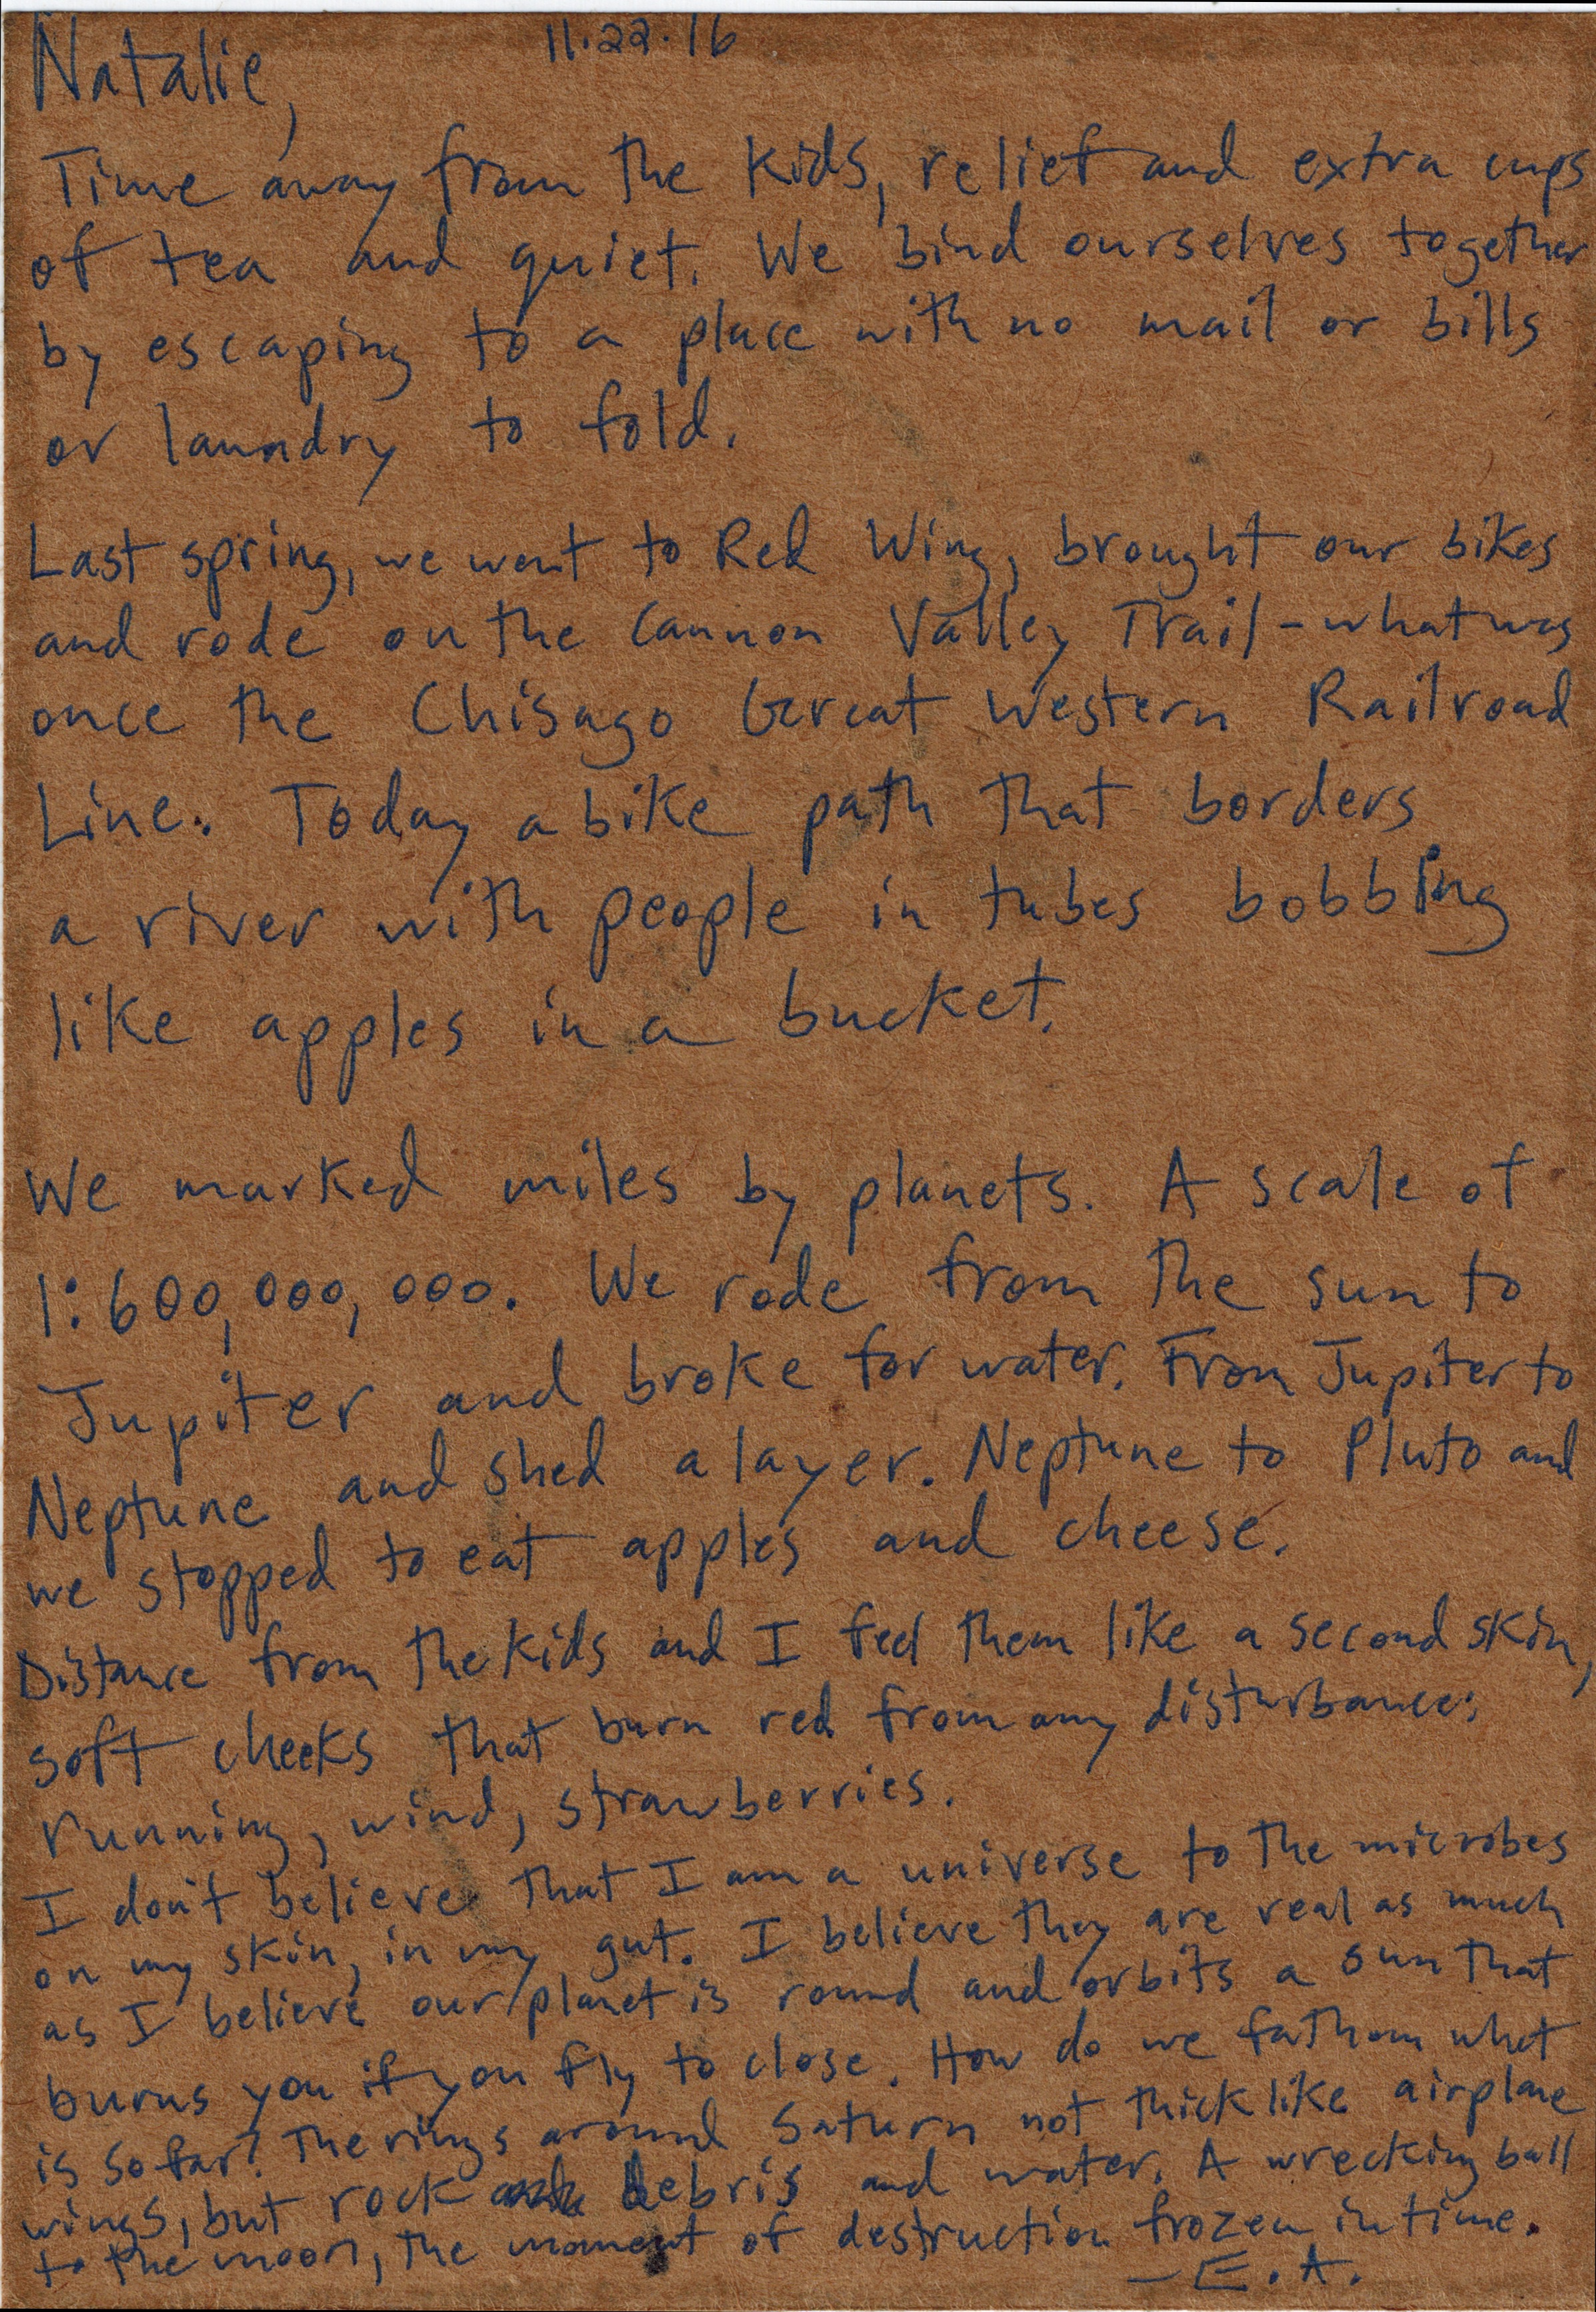 11.22.16
Natalie,
Time away from the kids, relief and extra cups
of tea and quiet. We bind ourselves together
by escaping to a place with no mail or bills
or laundry to fold.
Last spring, we went to Red Wing, brought our bikes
and rode on the Cannon Valley Trail - what was
once the Chisago Great Western Railroad
Line. Today a bike path that borders
a river with people in tubes bobbing
like apples in a bucket.
We marked miles by planets. A scale of
1:600,000,000. We rode from the sun to
Jupiter and broke for water. From Jupiter to
Neptune and shed a layer. Neptune to Pluto and
we stopped to eat apples and cheese.
Distance from the kids and I feel them like a second skin,
soft cheeks that burn red from any disturbance:
running, wind, strawberries.
I don't believe that I am a universe to the microbes
on my skin, in my gut. I believe they are real as much
as I believe our planet is round and orbits a sun that
burns you if you fly to close. How do we fathom what
is so far? The rings around Saturn not thick like airplane
wings, but rock debris and water. A wrecking ball
to the moon, the moment of destruction frozen in time.
- E.A.